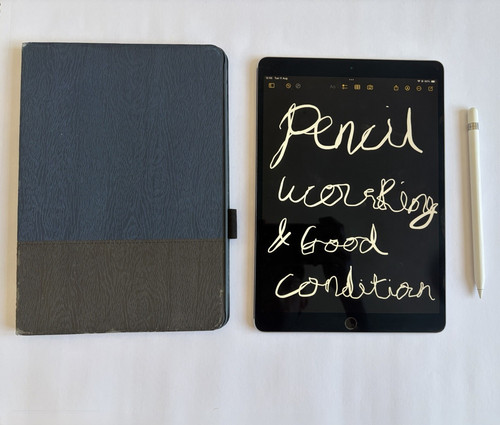 Pencil
working
& Good
condition